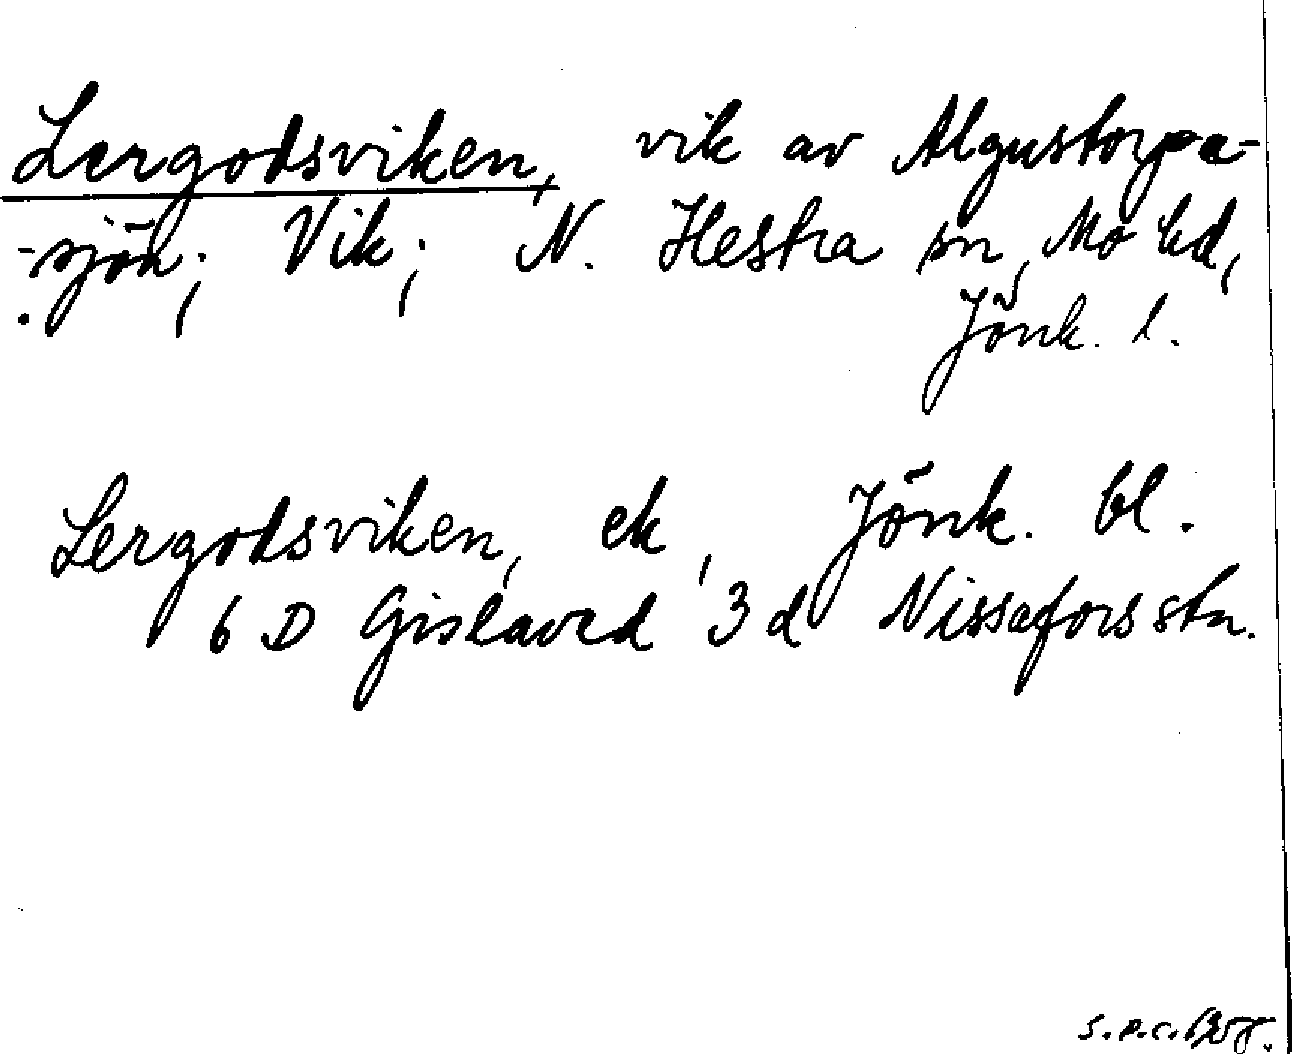 Lergodsviken, vik av Algustorpa-
-sjön; Vik; N. Hestra sn, Mo hd,
Jönk. l.
Lergodsviken, ek, Jönk. bl.
6 D Gislaved 3 d Nissafors stn.